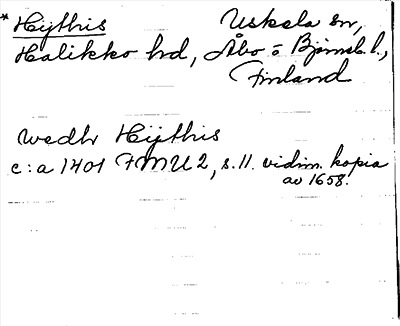 * Hijthis Uskela sn,
Halikko hd, Åbo o Björneb. l.,
Finland
wedhr Hijthis
c:a 1401 FMU 2, s. 11. vidim. kopia
av 1658.